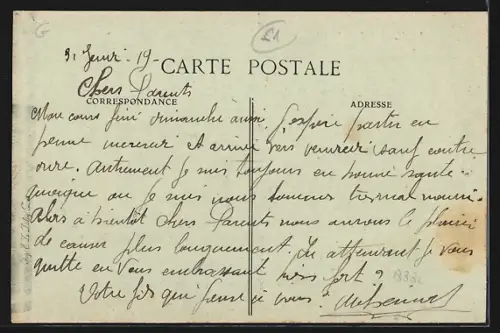 31 Janvr. 19
CARTE POSTALE
Chers Parents
CORRESPONDANCE
ADRESSE
Mon cours fini dimanche aussi j'espère partir en
perme mercredi et arriver vers vendredi sauf contre
ordre. Autrement je suis toujours en bonne santé
quoique ou je suis nous sommes très mal nourri.
Alors à bientôt chers Parents nous aurons le plaisir
de causer plus longuement. En attendant je vous
quitte en vous embrassant bien fort
Votre fils qui pense à vous